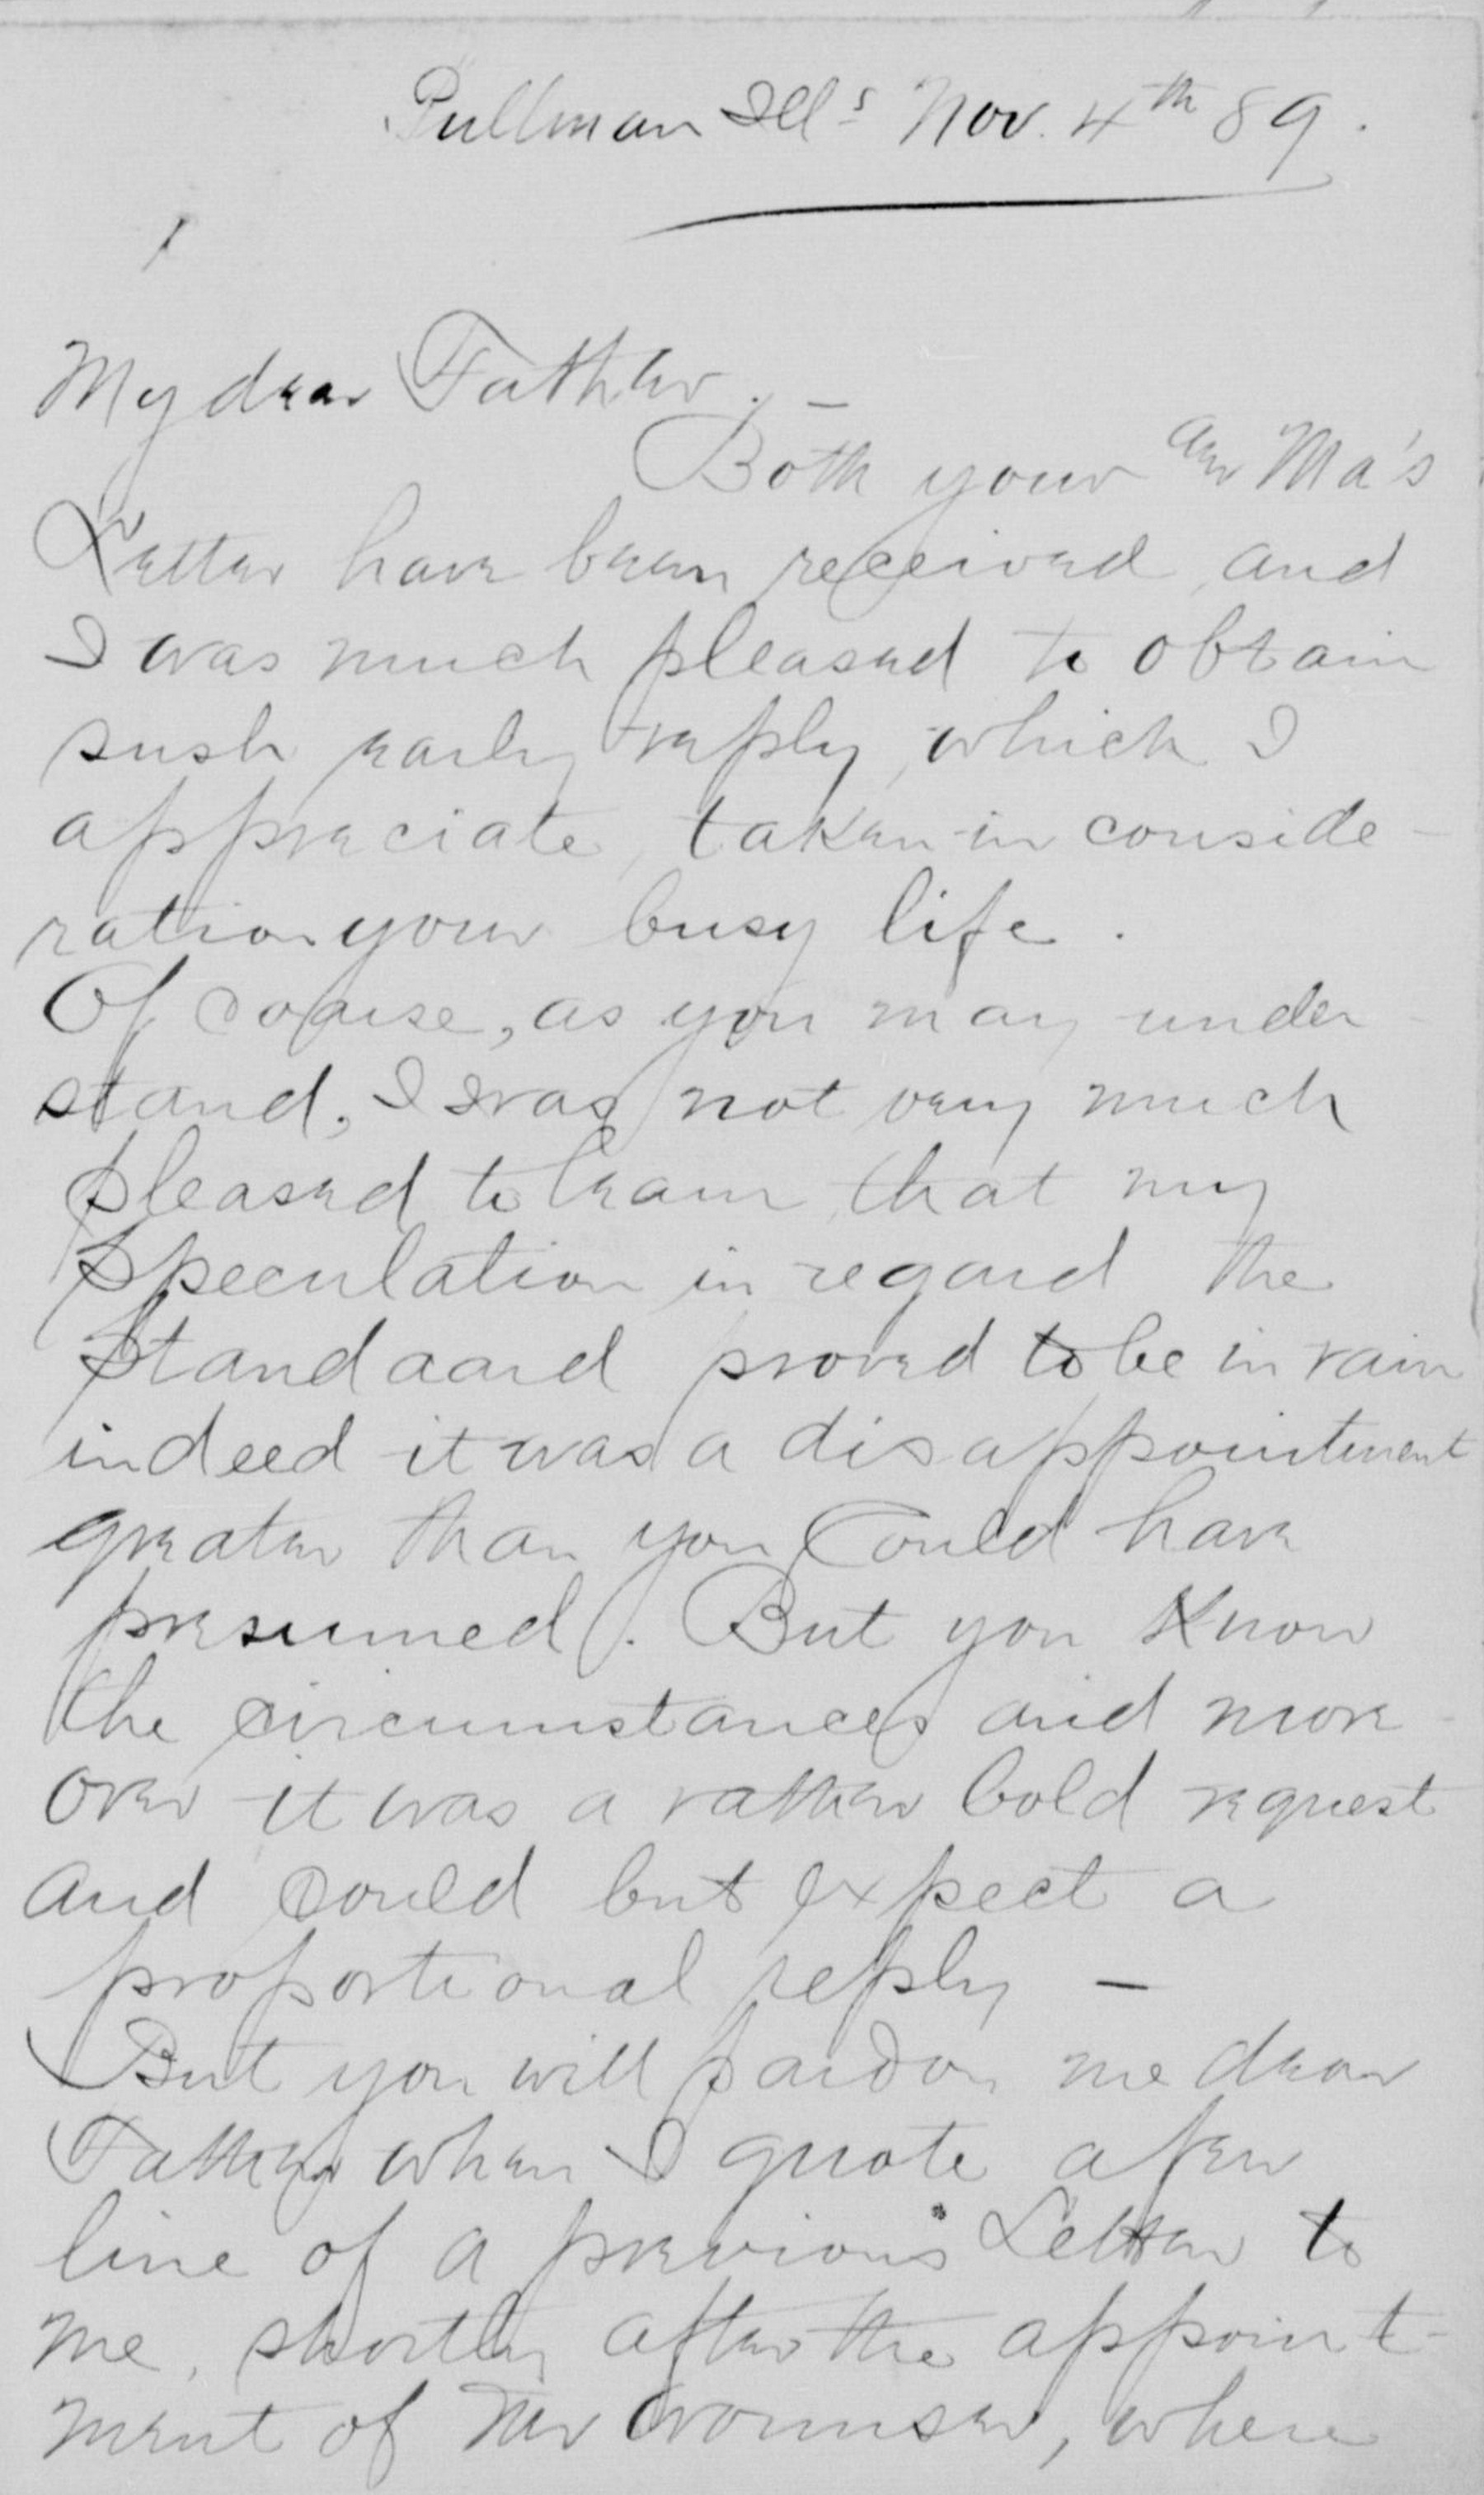 Pullman Ills Nov. 4th 89.
My dear Father. –
Both your an Ma's
Letter have been received, and
I was much pleased to obtain
sush early reply, which I
appreciate, taken in conside-
ration your busy life.
Of course, as you may under-
stand, I was not very much
pleased to learn, that my
speculation in regard the
Standaard proved to be in vain
indeed it was a disappointment
greater than you could have
presumed. But you know
the circumstances and more-
over it was a rather bold request
and could but expect a
proportional reply –
But you will pardon me dear
Father when I quote a few
line of a previous Letter to
me, shortly after the appoint-
ment of Mr, where